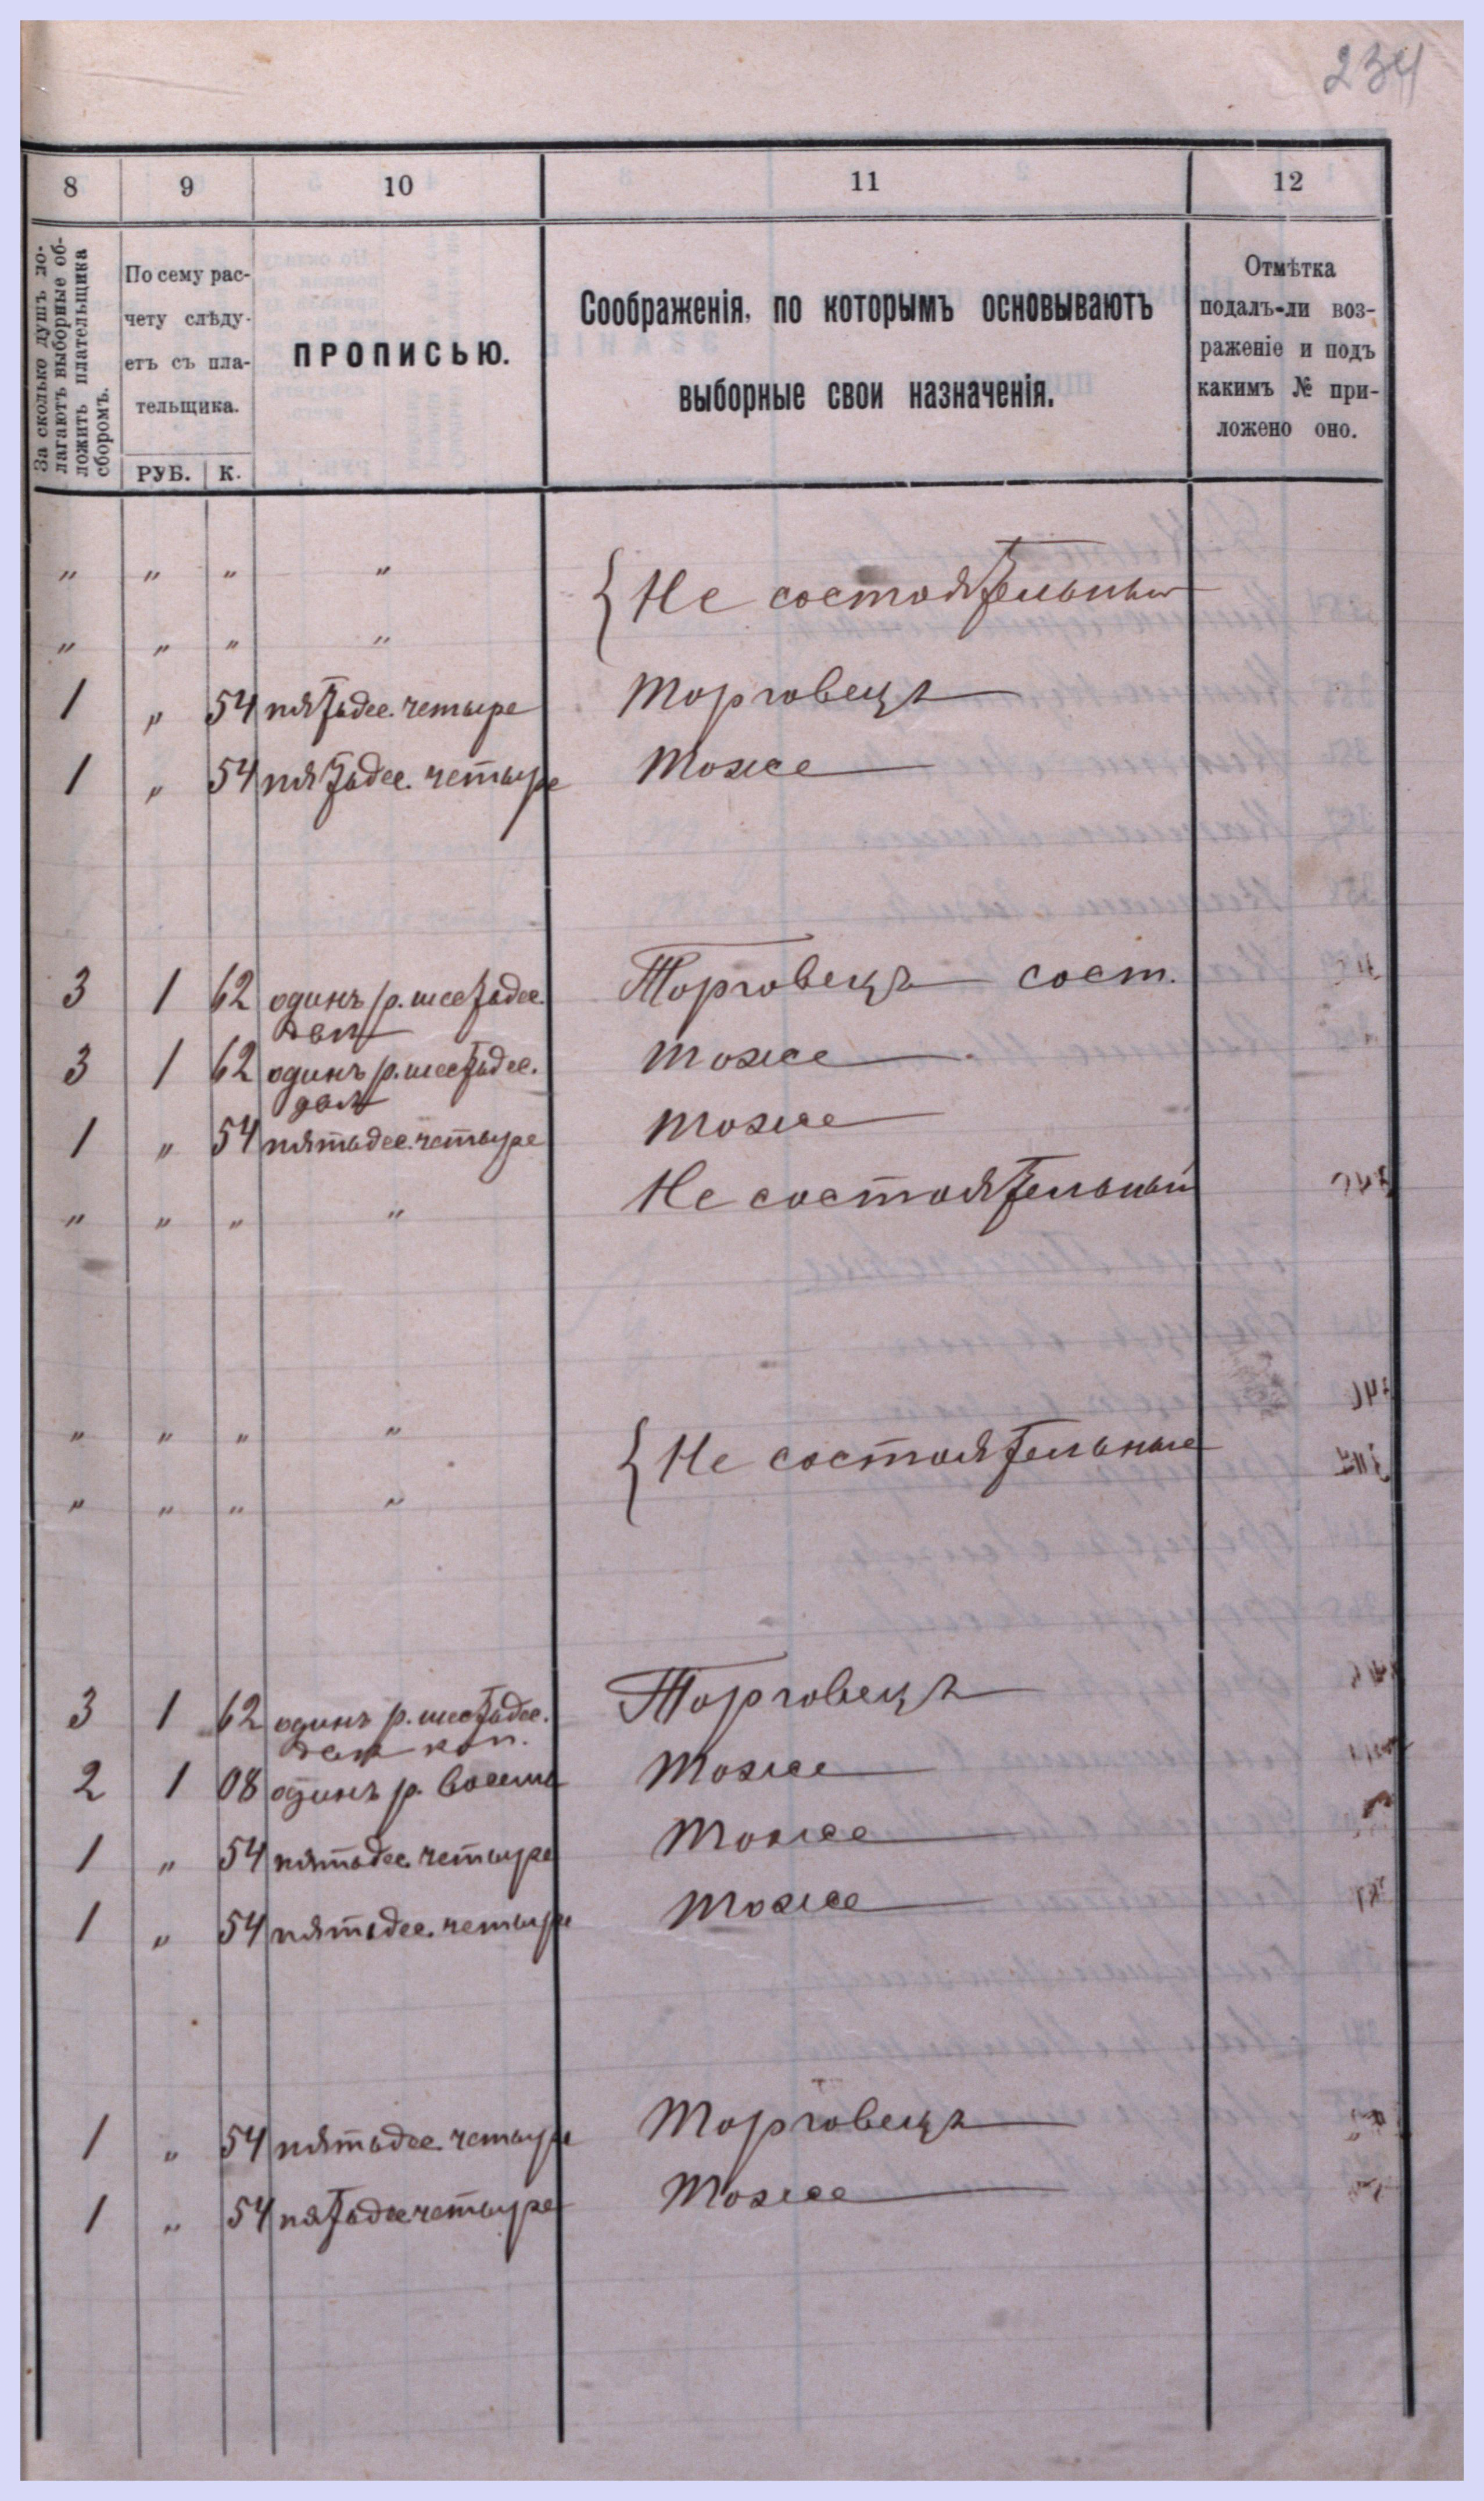 234
8 9 10 11 12
За сколько душъ по-
лагаютъ выборные об-
ложить плательщика
сборомъ.
По сему рас-
чету слѣду-
етъ съ пла-
тельщика.
РУБ. К.
ПРОПИСЬЮ.
Соображенія, по которымъ основываютъ
выборные свои назначенія.
Отмѣтка
подалъ-ли воз-
раженіе и подъ
какимъ № при-
ложено оно.
" " " " { Не состоятельные
" " " "
1 " 54 пятьдес. четыре Торговецъ
1 " 54 пятьдес. четыре Тоже
3 1 62 одинъ р. шестьдес. Торговецъ сост.
два
3 1 62 одинъ р. шестьдес. Тоже
два
1 " 54 пятьдес. четыре Тоже
" " " " Не состоятельный
" " " " { Не состоятельные
" " " "
3 1 62 одинъ р. шестьдес. Торговецъ
два коп.
2 1 08 одинъ р. восемь Тоже
1 " 54 пятьдес. четыре Тоже
1 " 54 пятьдес. четыре Тоже
1 " 54 пятьдес. четыре Торговецъ
1 " 54 пятьдес четыре Тоже